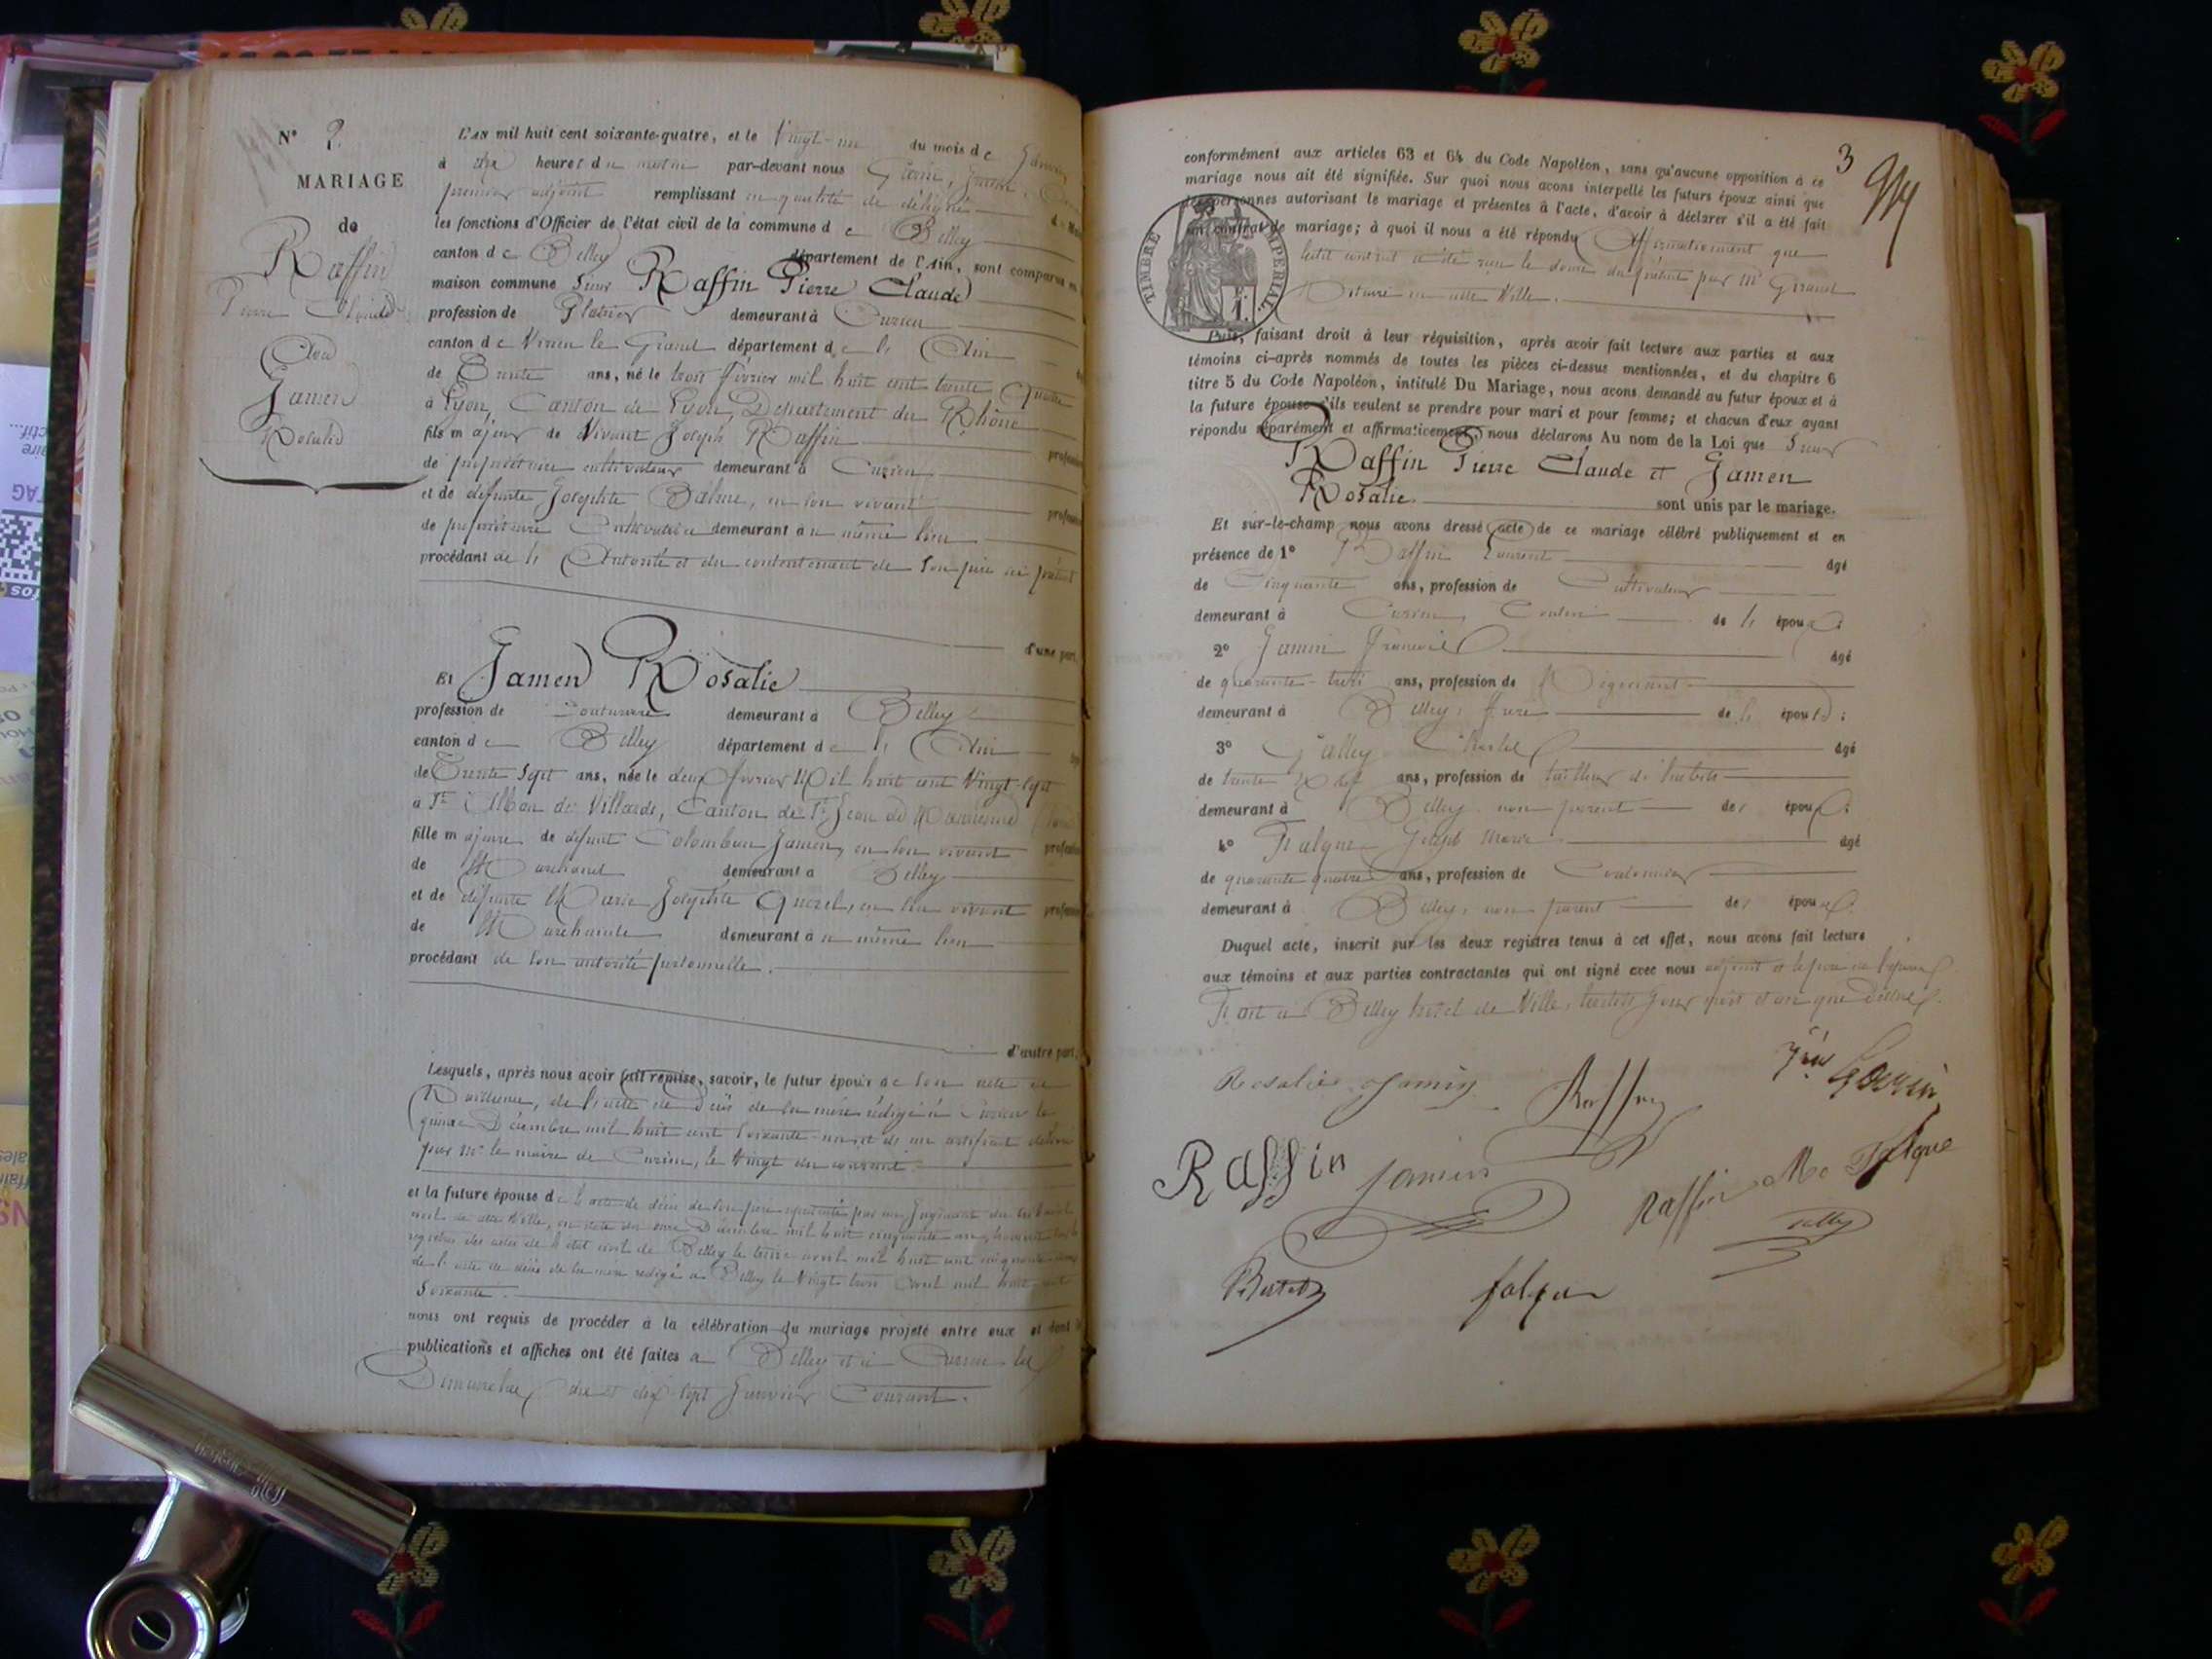 N° 2
MARIAGE
de
Raffin
Pierre Claude
Avec
Jamen
Rosalie
L'AN mil huit cent soixante-quatre, et le Vingt-un du mois de Janvier
à dix heures du matin par-devant nous
premier adjoint remplissant en qualité de délégué
les fonctions d'Officier de l'état civil de la commune de Belley
canton de Belley département de l'Ain, sont comparus en
maison commune Sieur Raffin Pierre Claude
profession de Platrier demeurant à Cuzieu
canton de Virieu le Grand département de l'Ain
de Trente ans, né le trois février mil huit cent trente Quatre
à Lyon, Canton de Lyon, Département du Rhône
fils majeur de Vivant Joseph Raffin
de propriétaire cultivateur demeurant à Cuzieu
et de défunte Josephte Balme, en son vivant
de propriétaire Cultivatrice demeurant au même lieu
procédant de l'Autorité et du contentement de son père ici présent
d'une part,
Et Jamen Rosalie
profession de Couturière demeurant à Belley
canton de Belley département de l'Ain
de Trente Sept ans, née le deux février Mil huit cent Vingt-Sept
à St Alban des Villards, Canton de St Jean de Maurienne
fille majeure de défunt Colomban Jamen, en son vivant
de Marchand demeurant à Belley
et de défunte Marie Josephte Quezel, en son vivant
de Marchande demeurant au même lieu
procédant de son autorité personnelle.
d'autre part,
Lesquels, après nous avoir fait remise, savoir, le futur époux de son acte de
Naissance, de l'acte de Décès de sa mère rédigé à Cuzieu le
quinze Décembre mil huit cent soixante-un et de un certificat délivré
par Mr le maire de Cuzieu, le Vingt du courant
et la future épouse de l'acte de décès de son père par un Jugement du tribunal
civil de cette Ville, en date du onze Décembre mil huit cinquante
registres des actes de l'état civil de Belley le avril mil huit cent cinquante
de l'acte de décès de sa mère rédigé à Belley le Vingt trois Avril mil huit cent
Soixante.
nous ont requis de procéder à la célébration du mariage projeté entre eux et dont les
publications et affiches ont été faites à Belley et à Cuzieu les
Dimanches dix et dix-sept Janvier Courant.
3
conformément aux articles 63 et 64 du Code Napoléon, sans qu'aucune opposition à ce
mariage nous ait été signifiée. Sur quoi nous avons interpellé les futurs époux ainsi que
les personnes autorisant le mariage et présentes à l'acte, d'avoir à déclarer s'il a été fait
un contrat de mariage; à quoi il nous a été répondu Affirmativement que
ledit contrat a été reçu le douze du présent par Mr Girand
Notaire en cette Ville.
TIMBRE IMPERIAL
Puis, faisant droit à leur réquisition, après avoir fait lecture aux parties et aux
témoins ci-après nommés de toutes les pièces ci-dessus mentionnées, et du chapitre 6
titre 5 du Code Napoléon, intitulé Du Mariage, nous avons demandé au futur époux et à
la future épouse s'ils veulent se prendre pour mari et pour femme; et chacun d'eux ayant
répondu séparément et affirmativement, nous déclarons Au nom de la Loi que Sieur
Raffin Pierre Claude et Jamen
Rosalie sont unis par le mariage.
Et sur-le-champ nous avons dressé acte de ce mariage célébré publiquement et en
présence de 1° Raffin Laurent âgé
de Cinquante ans, profession de Cultivateur
demeurant à Cuzieu, Cousin de l'époux
2° Jamin François âgé
de quarante-trois ans, profession de Négociant
demeurant à Belley, frère de l'épouse;
3° Charles âgé
de trente ans, profession de tailleur d'habits
demeurant à Belley non parent des époux;
4° Falque Joseph Marie âgé
de quarante quatre ans, profession de Cordonnier
demeurant à Belley, non parent des époux.
Duquel acte, inscrit sur les deux registres tenus à cet effet, nous avons fait lecture
aux témoins et aux parties contractantes qui ont signé avec nous adjoint et le père de l'époux
Fait à Belley hôtel de Ville, lesdits jour, mois et an que dessus.
Rosalie Jamin
Raffin
Raffin
Jamin
Raffin
falque